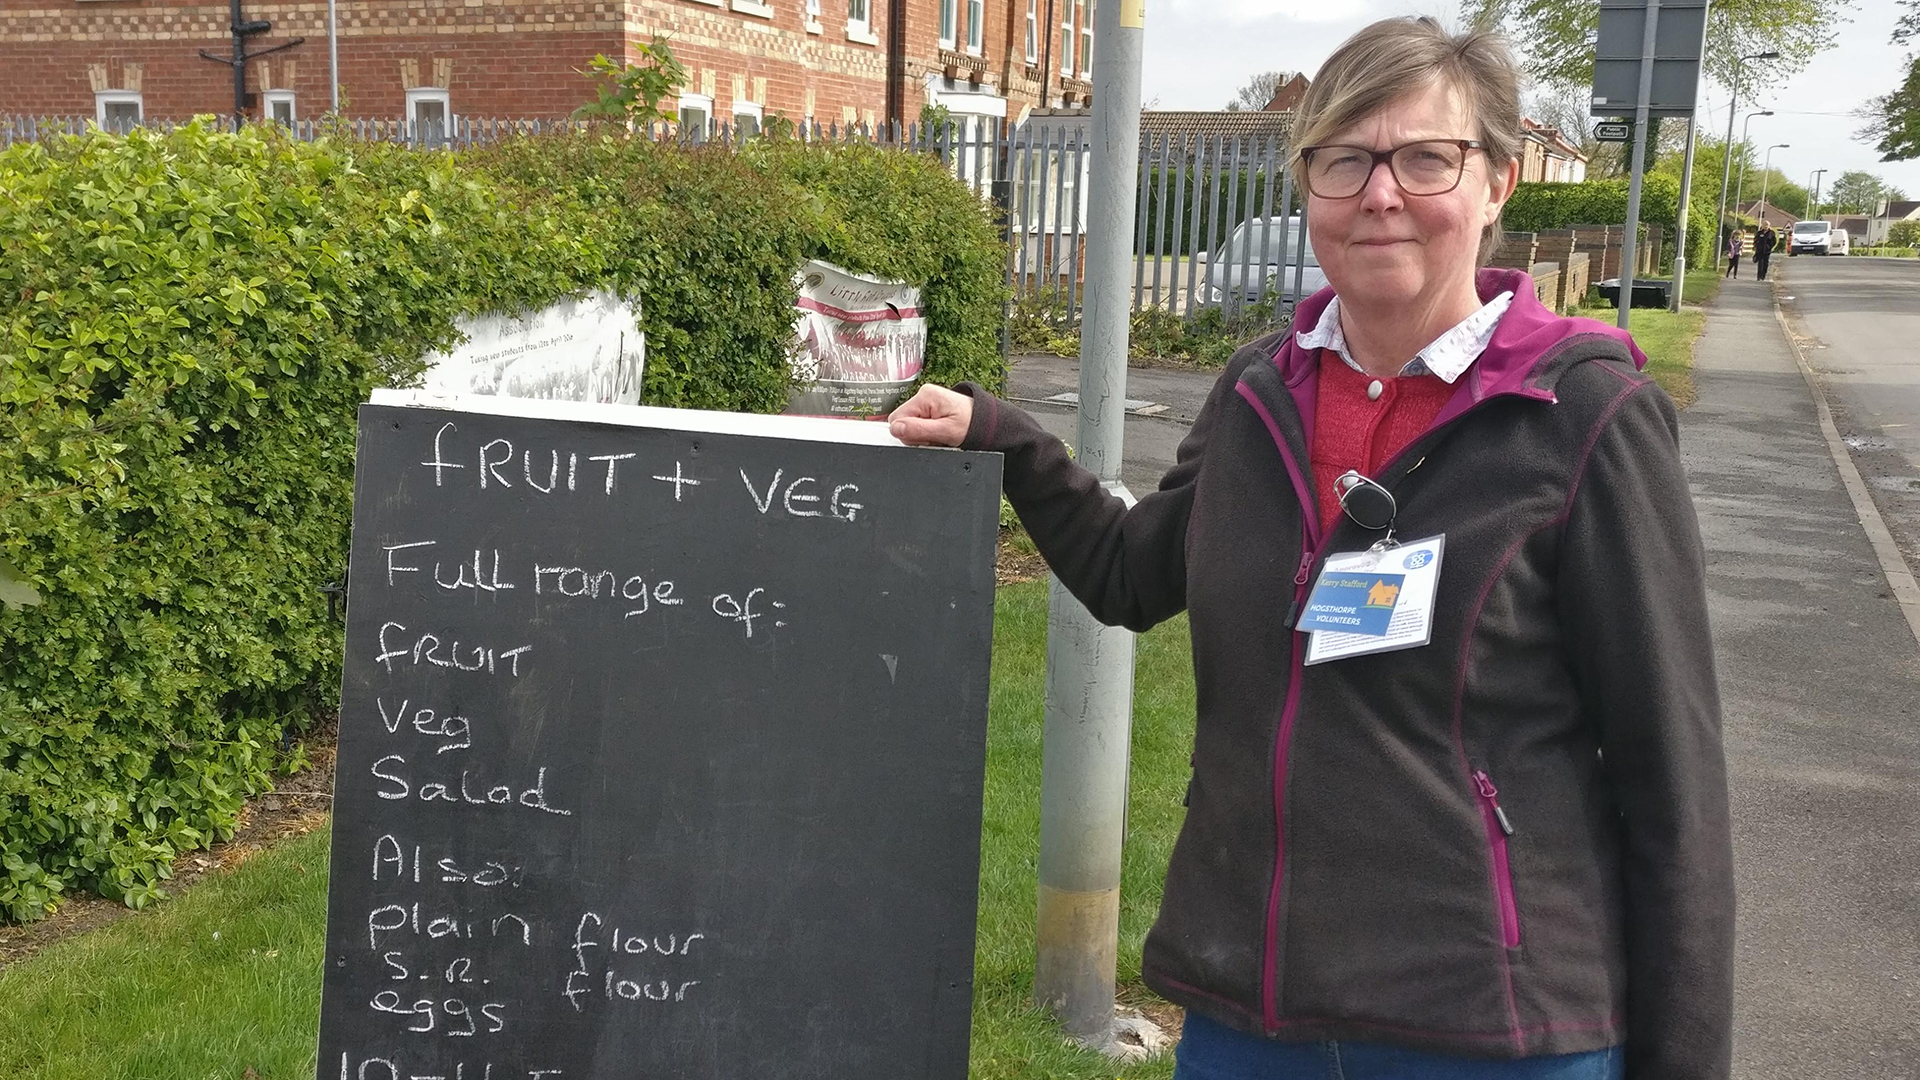 fRUIT + VEG
Full range of:
fRUIT
Veg
Salad
Also:
plain flour
S.R. flour
eggs
Association
Taking new students from 12th April
Kerry Stafford
HOGSTHORPE
VOLUNTEERS
Public
Footpath